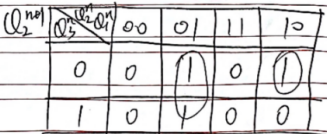 Q₂ⁿ⁺¹ Q₃ⁿ Q₂ⁿQ₁ⁿ 00 01 11 10
0 0 1 0 1
1 0 1 0 0